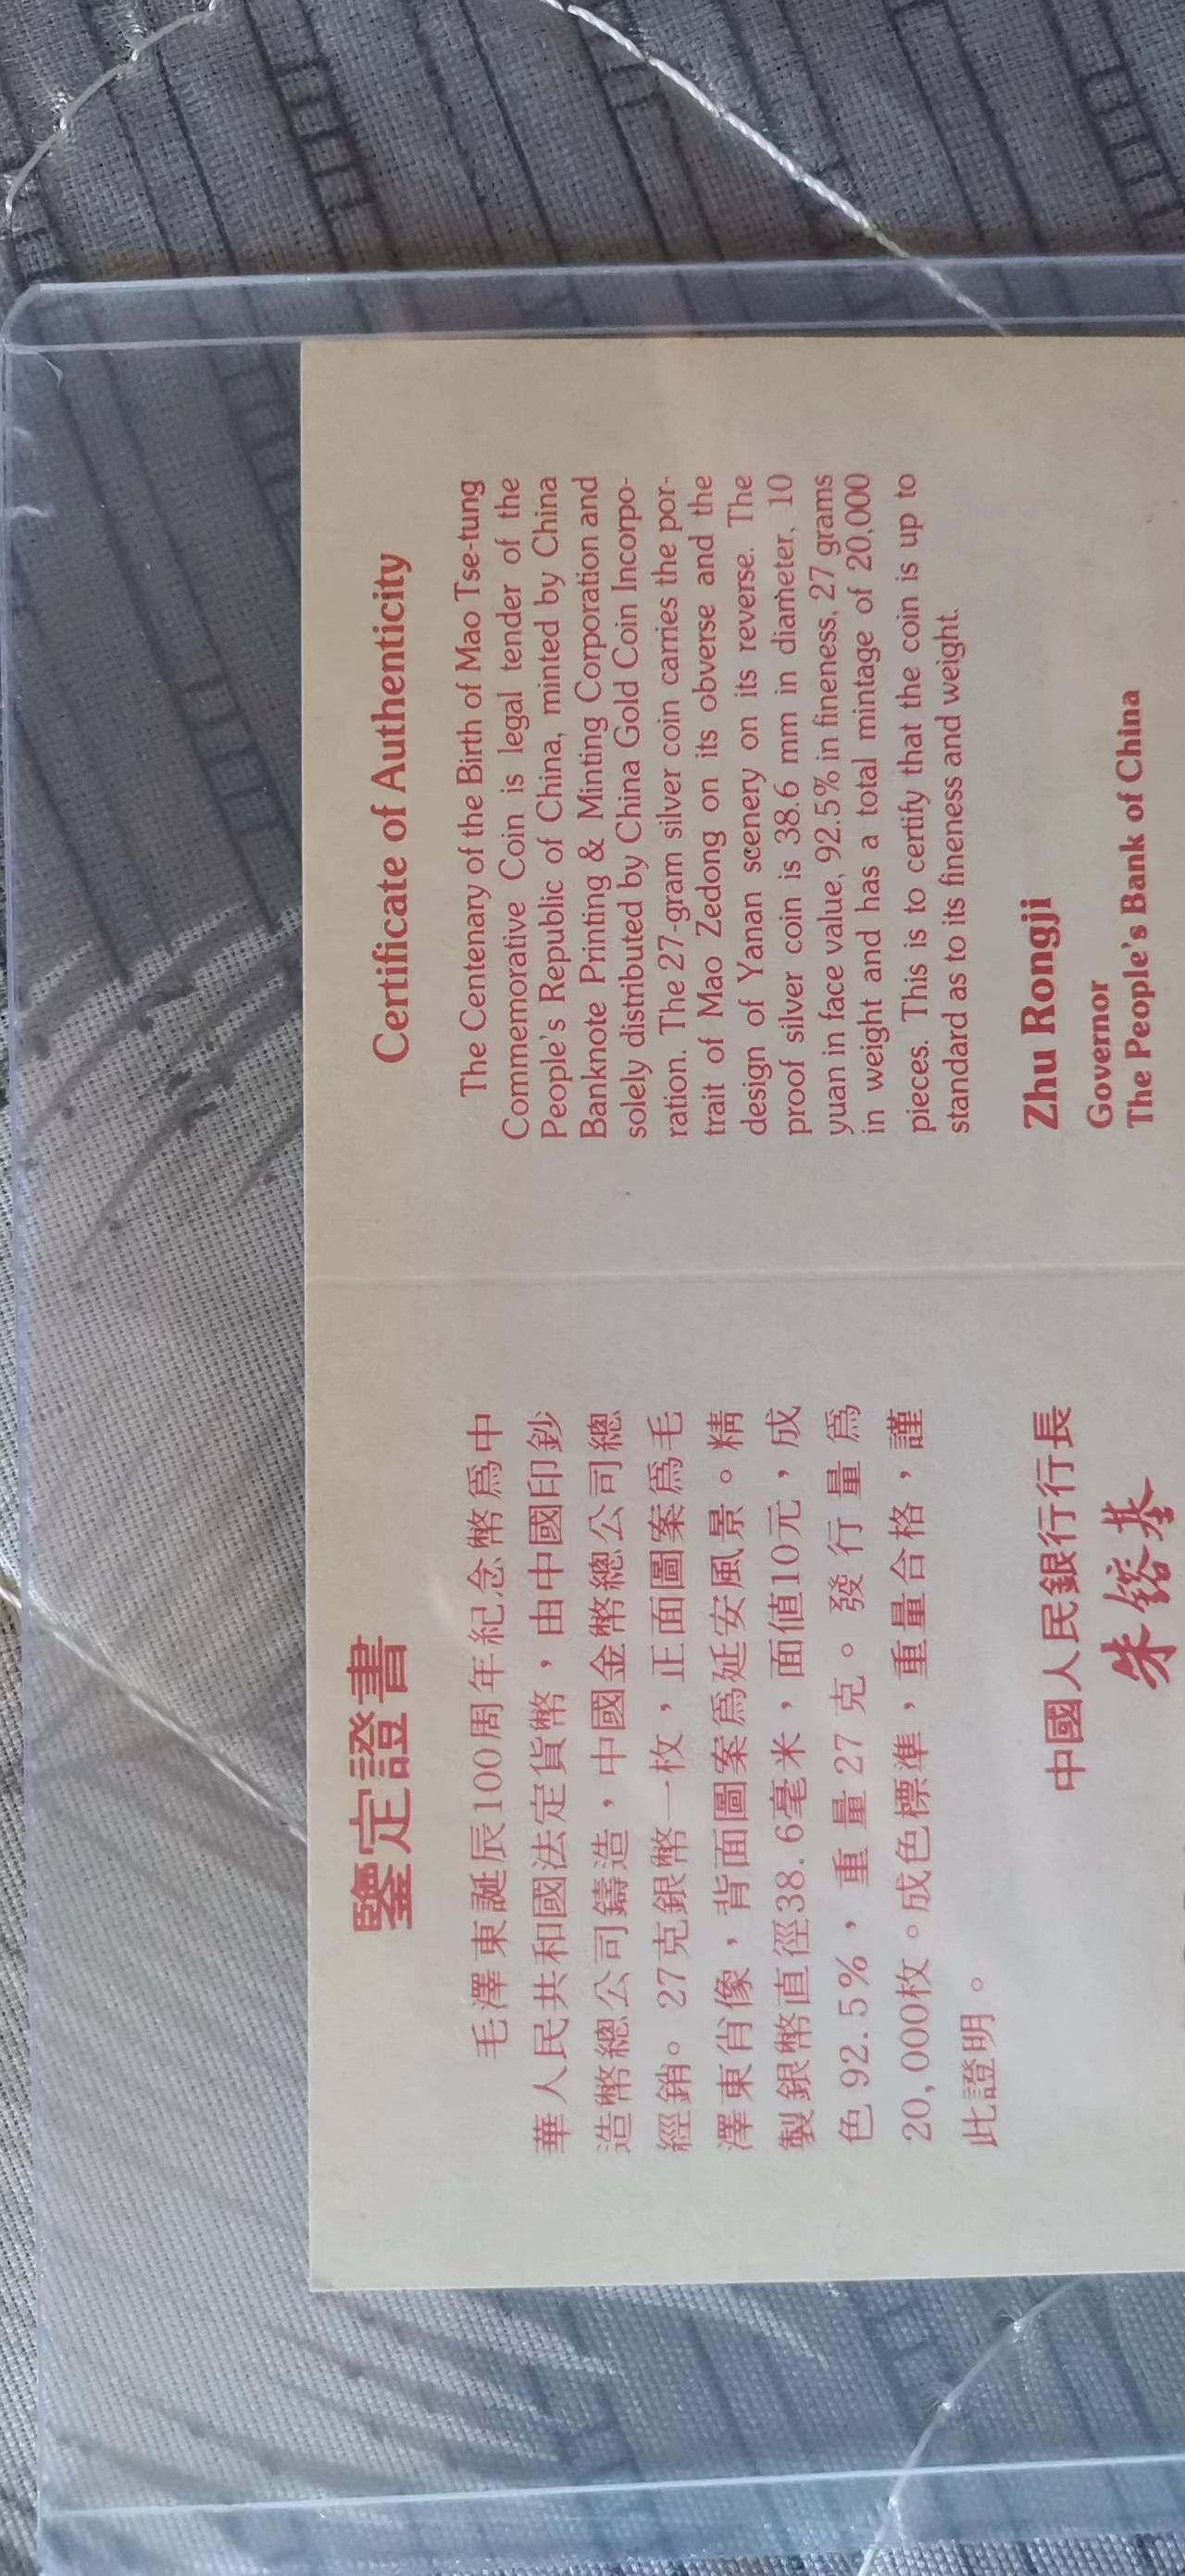 鑒定證書
毛澤東誕辰100周年紀念幣爲中
華人民共和國法定貨幣，由中國印鈔
造幣總公司鑄造，中國金幣總公司總
經銷。27克銀幣一枚，正面圖案爲毛
澤東肖像，背面圖案爲延安風景。精
製銀幣直徑38.6毫米，面值10元，成
色92.5%，重量27克。發行量爲
20,000枚。成色標準，重量合格，謹
此證明。
中國人民銀行行長
朱鎔基
Certificate of Authenticity
The Centenary of the Birth of Mao Tse-tung
Commemorative Coin is legal tender of the
People's Republic of China, minted by China
Banknote Printing & Minting Corporation and
solely distributed by China Gold Coin Incorpo-
ration. The 27-gram silver coin carries the por-
trait of Mao Zedong on its obverse and the
design of Yanan scenery on its reverse. The
proof silver coin is 38.6 mm in diameter, 10
yuan in face value, 92.5% in fineness, 27 grams
in weight and has a total mintage of 20,000
pieces. This is to certify that the coin is up to
standard as to its fineness and weight.
Zhu Rongji
Governor
The People's Bank of China